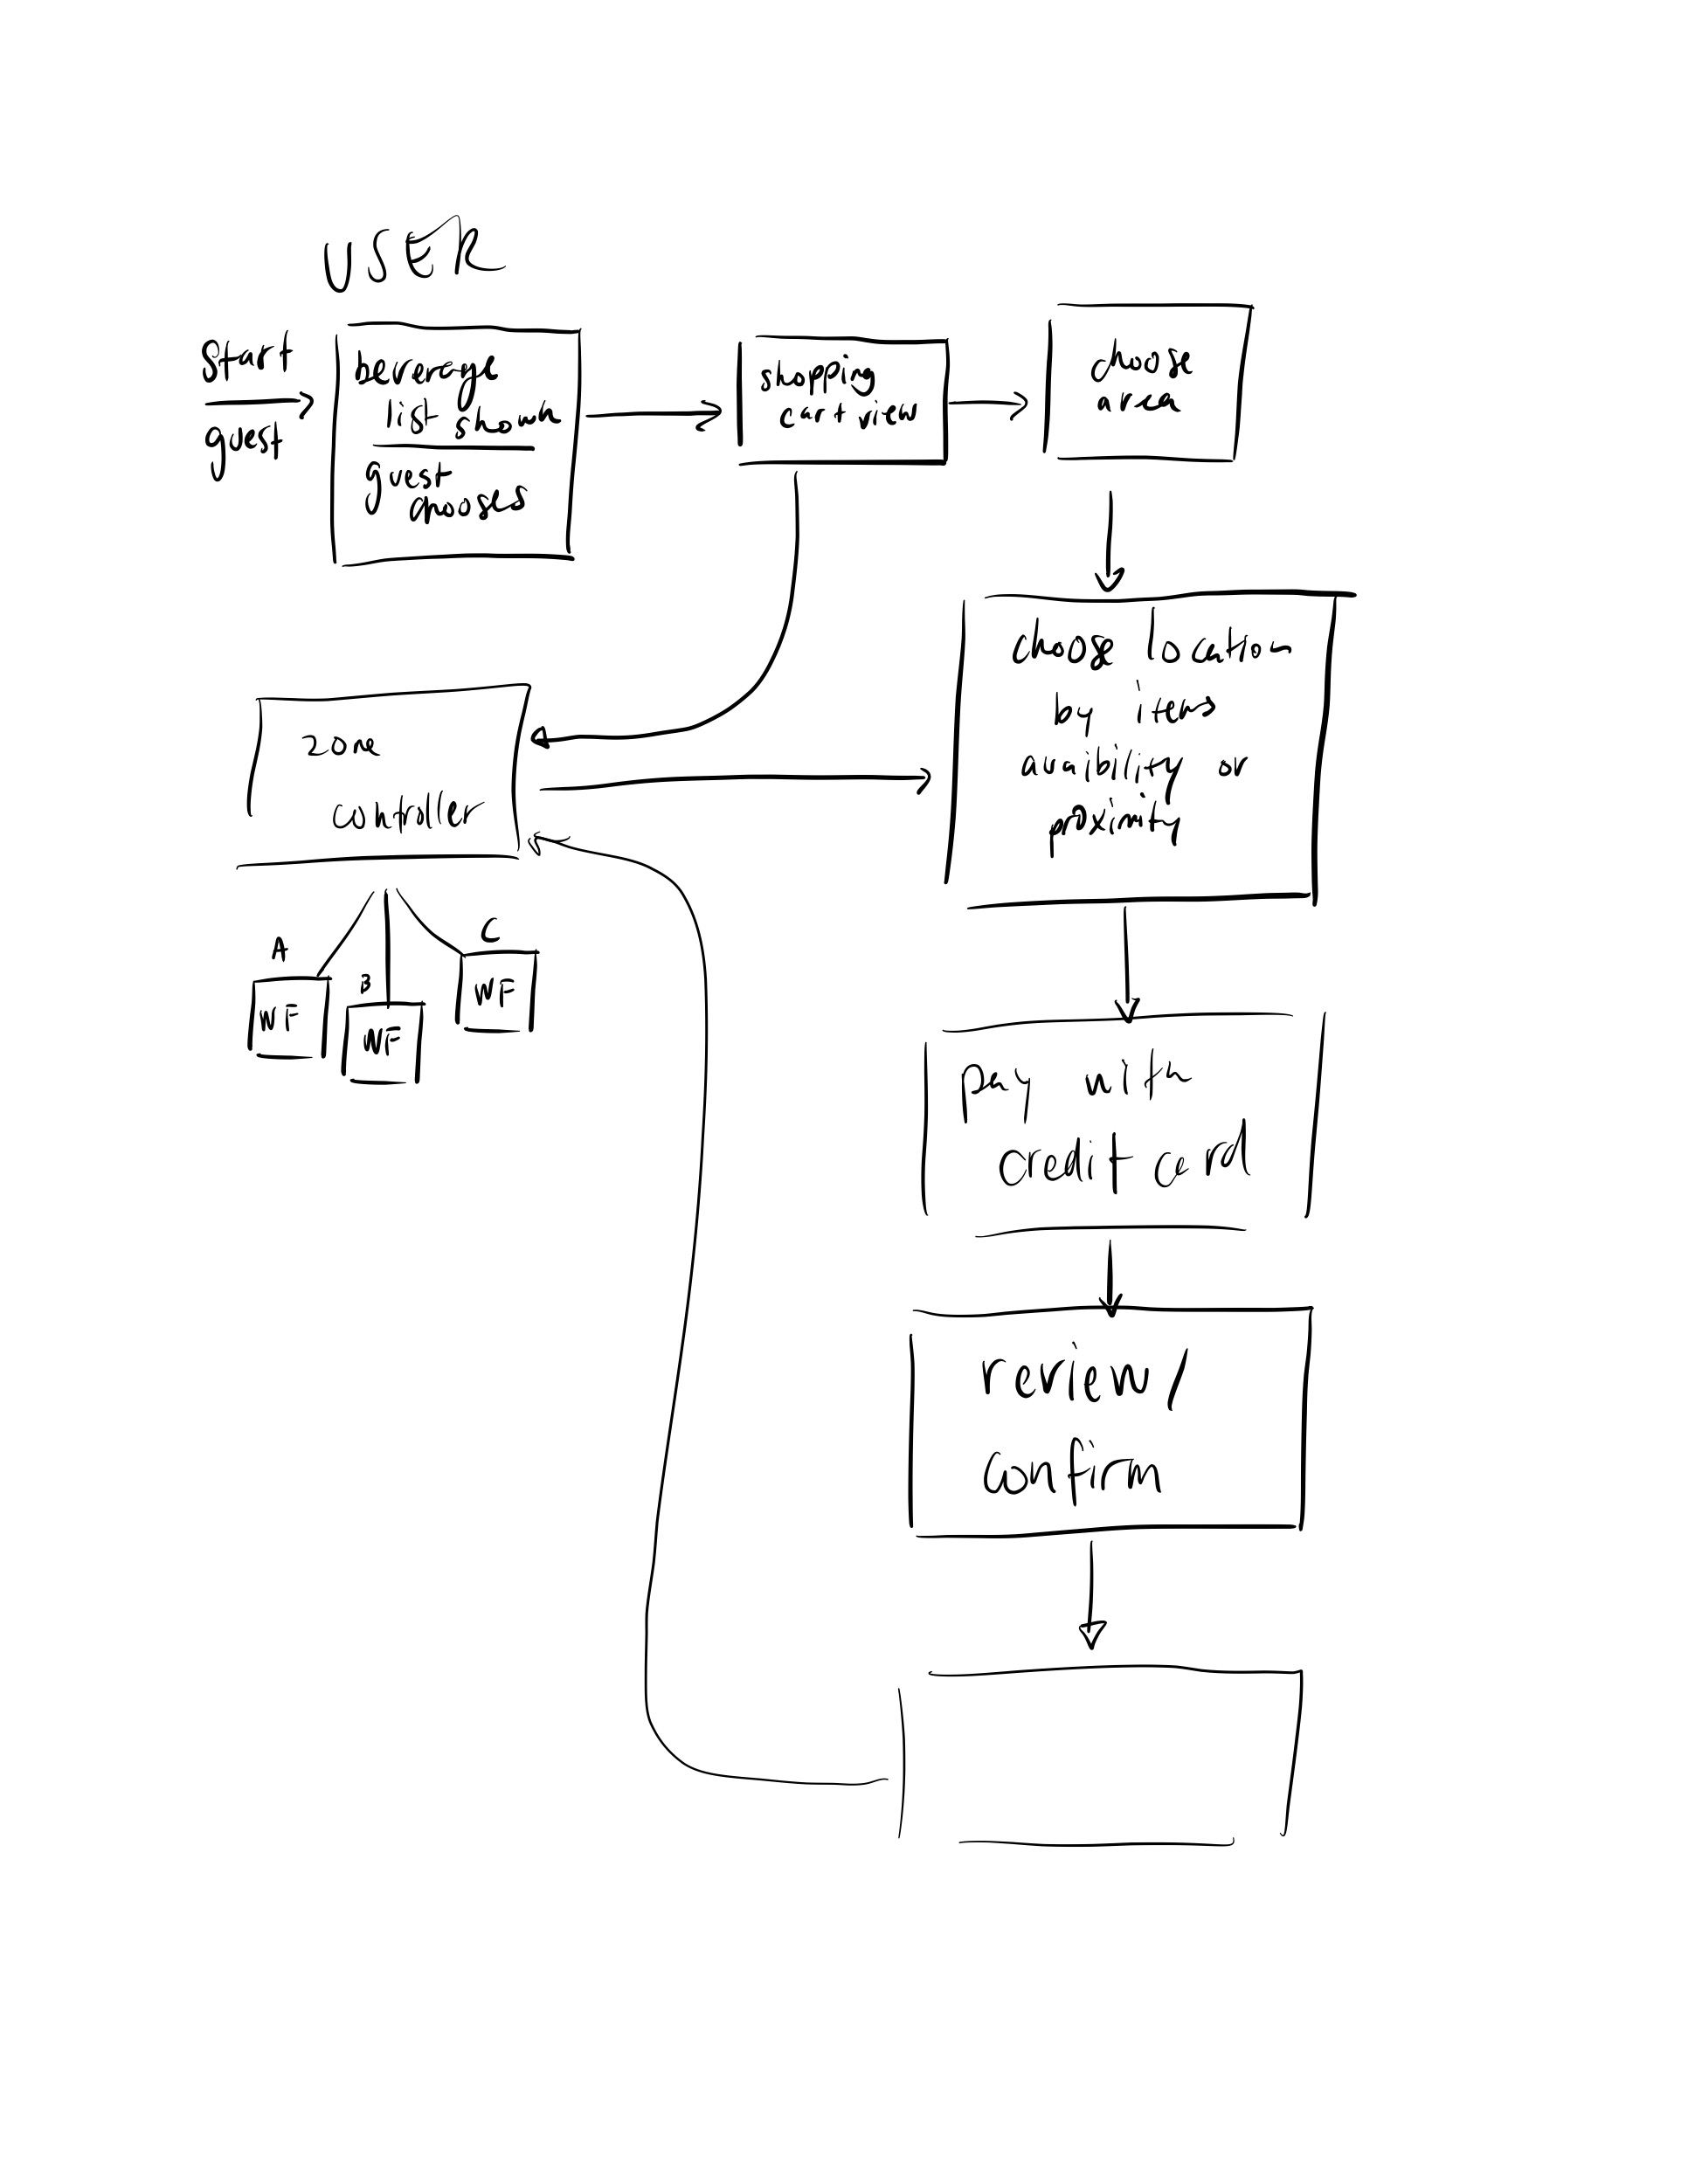 USER
Start
guest
beverage
list shown
guest
chooses
shopping
cart view
choose
area
choose location
by items
avaibility or
proximity
zone
controller
A
WF
B
WF
C
WF
pay with
credit card
review/
confirm